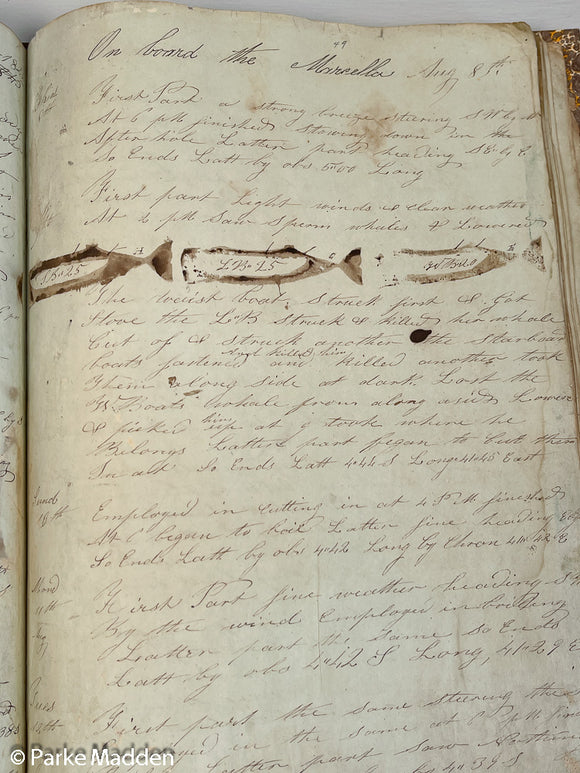 49
On board the Marcella Aug 8th
First Part a strong breeze steering S W by W
At 6 PM finished stowing down in the
After hole Latter part heading S E by E
So Ends Latt by obs 5"00 Long
First part Light winds & clear weather
At 2 PM Saw Sperm whales & Lowered
S B 25
L B 25
W B 20
The waist boat Struck first & got
Stove the L B Struck & killed her whale
Cut of & struck another the Starboard
boats fastened and killed him
and killed another took
Them along side at dark. Lost the
W Boats whale from along side Lowered
& picked him up at 9 took where he
Belongs Latter part began to Cut them
In all So Ends Latt 4"44 S Long 41"45 East
Sund
10th
Employed in cutting in at 4 P M finished
At 6 began to boil Latter fine heading
So Ends Latt by obs 4"42 Long by Chron 41"42 E
Mond
11th
Aug
First Part fine weather heading S
By the wind Employed in boiling
Latter part the Same So Ends
Latt by obs 4"42 S Long, 41"29 E
Tues
12th
First part the same steering the
in the same at 6 PM
Latter part Saw
4"39 S
© Parke Madden